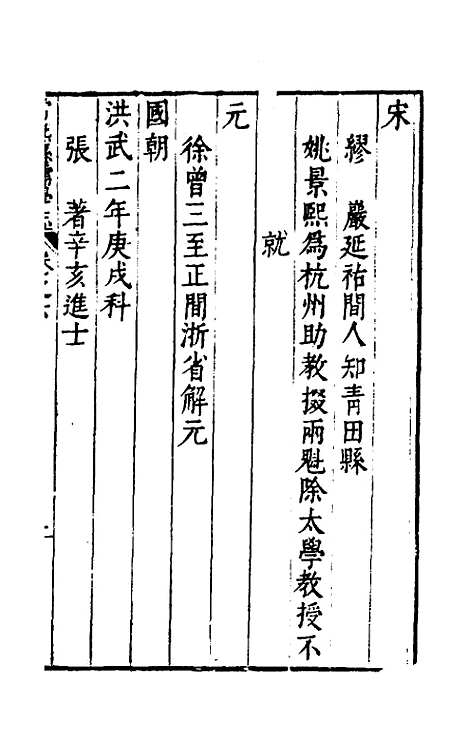 宋
繆　嚴延祐間人知青田縣
姚景熙為杭州助教掇兩魁除太學教授不
就
元
徐曾三至正間浙省解元
國朝
洪武二年庚戌科
張　著辛亥進士